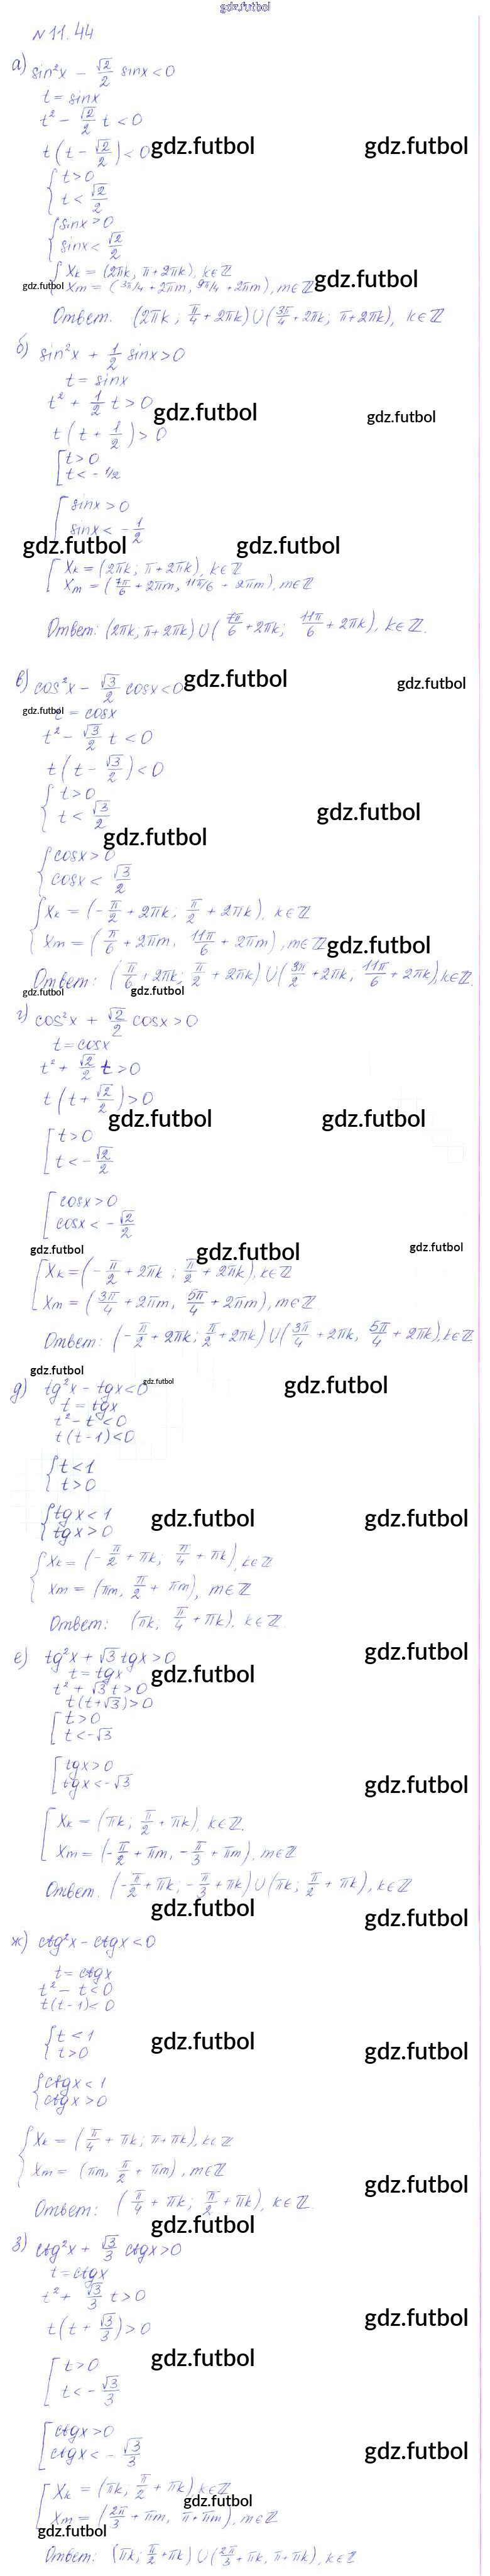 gdz.futbol
N 11.44
а) sin²x − √2/2 sinx < 0
t = sinx
t² − √2/2 t < 0
t(t − √2/2) < 0
gdz.futbol gdz.futbol
{ t > 0
t < √2/2
{ sinx > 0
sinx < √2/2
{ Xk = (2πk, π + 2πk), k∈ℤ
gdz.futbol Xm = (3π/4 + 2πm, 9π/4 + 2πm), m∈ℤ gdz.futbol
Ответ. (2πk; π/4 + 2πk) ∪ (3π/4 + 2πk; π + 2πk), k∈ℤ
б) sin²x + 1/2 sinx > 0
t = sinx
t² + 1/2 t > 0 gdz.futbol gdz.futbol
t(t + 1/2) > 0
[ t > 0
t < − 1/2
[ sinx > 0
sinx < − 1/2
gdz.futbol gdz.futbol
[ Xk = (2πk; π + 2πk), k∈ℤ
Xm = (7π/6 + 2πm, 11π/6 + 2πm), m∈ℤ
Ответ: (2πk, π + 2πk) ∪ (7π/6 + 2πk; 11π/6 + 2πk), k∈ℤ.
в) cos²x − √3/2 cosx < 0 gdz.futbol gdz.futbol
gdz.futbol t = cosx
t² − √3/2 t < 0
t(t − √3/2) < 0
{ t > 0
t < √3/2 gdz.futbol
gdz.futbol
{ cosx > 0
cosx < √3/2
{ Xk = (− π/2 + 2πk; π/2 + 2πk), k∈ℤ
Xm = (π/6 + 2πm, 11π/6 + 2πm), m∈ℤ gdz.futbol
Ответ: (π/6 + 2πk; π/2 + 2πk) ∪ (3π/2 + 2πk, 11π/6 + 2πk), k∈ℤ.
gdz.futbol gdz.futbol
г) cos²x + √2/2 cosx > 0
t = cosx
t² + √2/2 t > 0
t(t + √2/2) > 0
gdz.futbol gdz.futbol
[ t > 0
t < − √2/2
[ cosx > 0
cosx < − √2/2
gdz.futbol gdz.futbol gdz.futbol
[ Xk = (− π/2 + 2πk; π/2 + 2πk), k∈ℤ
Xm = (3π/4 + 2πm, 5π/4 + 2πm), m∈ℤ
Ответ: (− π/2 + 2πk; π/2 + 2πk) ∪ (3π/4 + 2πk, 5π/4 + 2πk), k∈ℤ
gdz.futbol
д) tg²x − tgx < 0 gdz.futbol gdz.futbol
t = tgx
t² − t < 0
t(t − 1) < 0
{ t < 1
t > 0
{ tgx < 1 gdz.futbol gdz.futbol
tgx > 0
{ Xk = (− π/2 + πk; π/4 + πk), k∈ℤ
Xm = (πm, π/2 + πm), m∈ℤ
Ответ: (πk; π/4 + πk), k∈ℤ.
е) tg²x + √3 tgx > 0 gdz.futbol
t = tgx gdz.futbol
t² + √3 t > 0
t(t + √3) > 0
[ t > 0
t < −√3
[ tgx > 0
tgx < −√3 gdz.futbol
[ Xk = (πk; π/2 + πk), k∈ℤ.
Xm = (− π/2 + πm, − π/3 + πm), m∈ℤ
Ответ. (− π/2 + πk; − π/3 + πk) ∪ (πk; π/2 + πk), k∈ℤ
gdz.futbol gdz.futbol
ж) ctg²x − ctgx < 0
t = ctgx
t² − t < 0
t(t − 1) < 0
{ t < 1 gdz.futbol gdz.futbol
t > 0
{ ctgx < 1
ctgx > 0
{ Xk = (π/4 + πk; π + πk), k∈ℤ
Xm = (πm, π/2 + πm), m∈ℤ
gdz.futbol
Ответ: (π/4 + πk; π/2 + πk), k∈ℤ.
gdz.futbol
з) ctg²x + √3/3 ctgx > 0
t = ctgx
t² + √3/3 t > 0
gdz.futbol
t(t + √3/3) > 0
gdz.futbol
[ t > 0
t < − √3/3
[ ctgx > 0
ctgx < − √3/3 gdz.futbol
[ Xk = (πk; π/2 + πk), k∈ℤ
gdz.futbol
Xm = (2π/3 + πm, π + πm), m∈ℤ
gdz.futbol
Ответ: (πk; π/2 + πk) ∪ (2π/3 + πk, π + πk), k∈ℤ